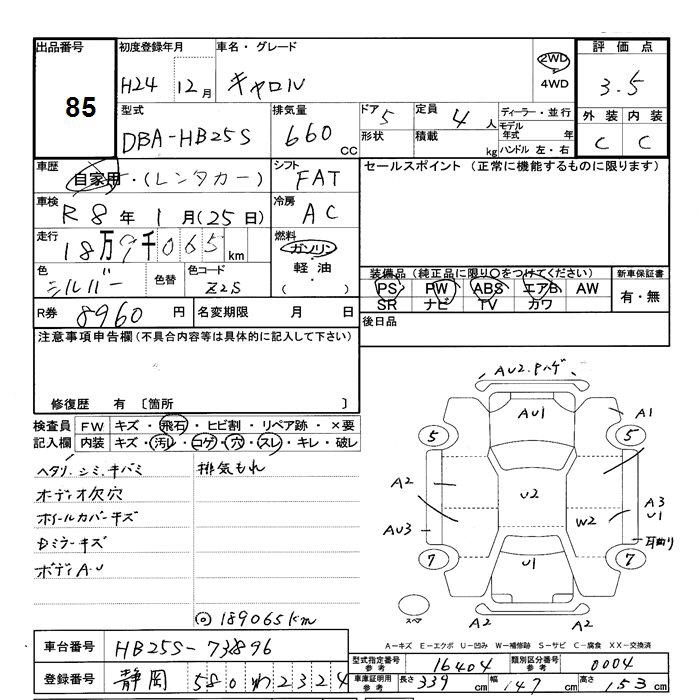 出品番号 初度登録年月 車名・グレード 2WD 評価点
85 H24 12月 キャロル 4WD 3.5
型式 排気量 ドア 定員 ディーラー・並行 外装 内装
DBA-HB25S 660 CC 5 4 人 モデル年式 年 C C
形状 積載 kg ハンドル 左・右
車歴 自家用・(レンタカー) シフト FAT セールスポイント (正常に機能するものに限ります)
車検 R8年 1月(25日) 冷房 AC
走行 18万9千065 km 燃料 ガソリン・軽油・( )
色 シルバー 色替 色コード Z2S
装備品 (純正品に限り○をつけてください) 新車保証書
PS PW ABS エアB AW 有・無
SR ナビ TV カワ
R券 8960 円 名変期限 月 日 後日品
注意事項申告欄(不具合内容等は具体的に記入して下さい)
修復歴 有 〔箇所 〕
検査員 FW キズ・飛石・ヒビ割・リペア跡・×要
記入欄 内装 キズ・汚レ・コゲ・穴・スレ・キレ・破レ
ヘタリ、シミ、キバミ 排気もれ
オーディオ欠穴
ホイールカバーキズ
Dミラーキズ
ボディA・U
◎189065km
AU2.Pハゲ
AU1 A1
5 5
A2 U2 A3 U1
AU3 W2
7 U1 7
スペア A2 A2
A-キズ E-エクボ U-凹み W-補修跡 S-サビ C-腐食 XX-交換済
車台番号 HB25S-73896
型式指定番号 参考 16404 類別区分番号 参考 0004
登録番号 静岡 580 わ 2324
車庫証明用 参考 長さ 339 cm 幅 147 cm 高さ 153 cm